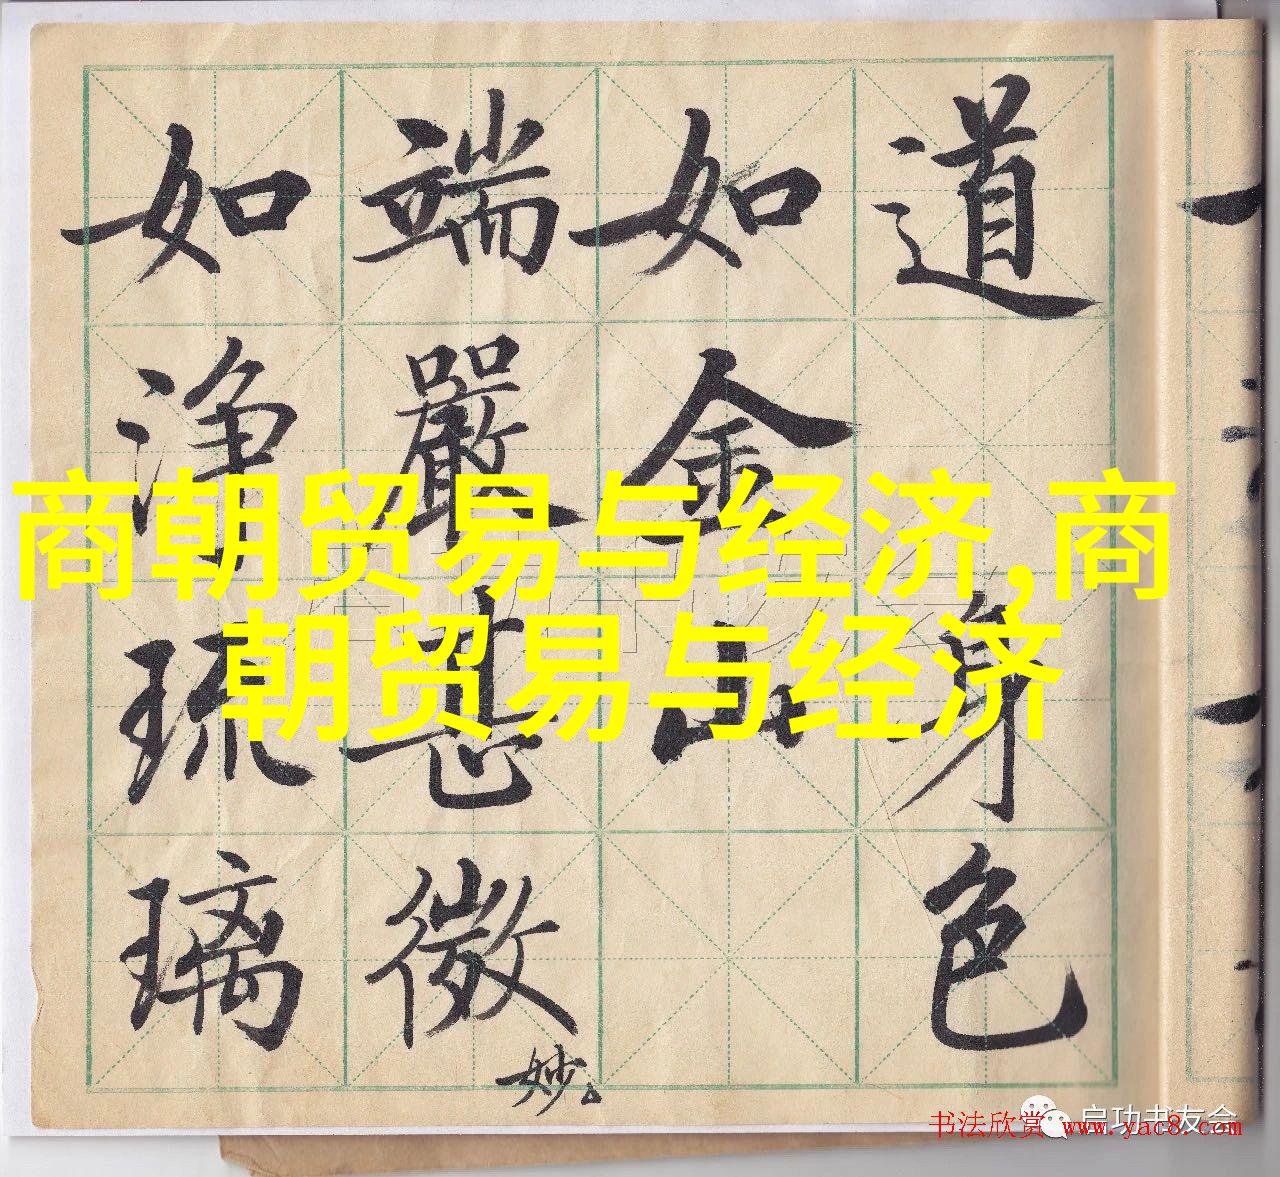 道
身色
如金山
端嚴甚微妙
如浄琉璃
商朝贸易与经济,商
朝贸易与经济
启功书友会
书法欣赏 www.yac8.com